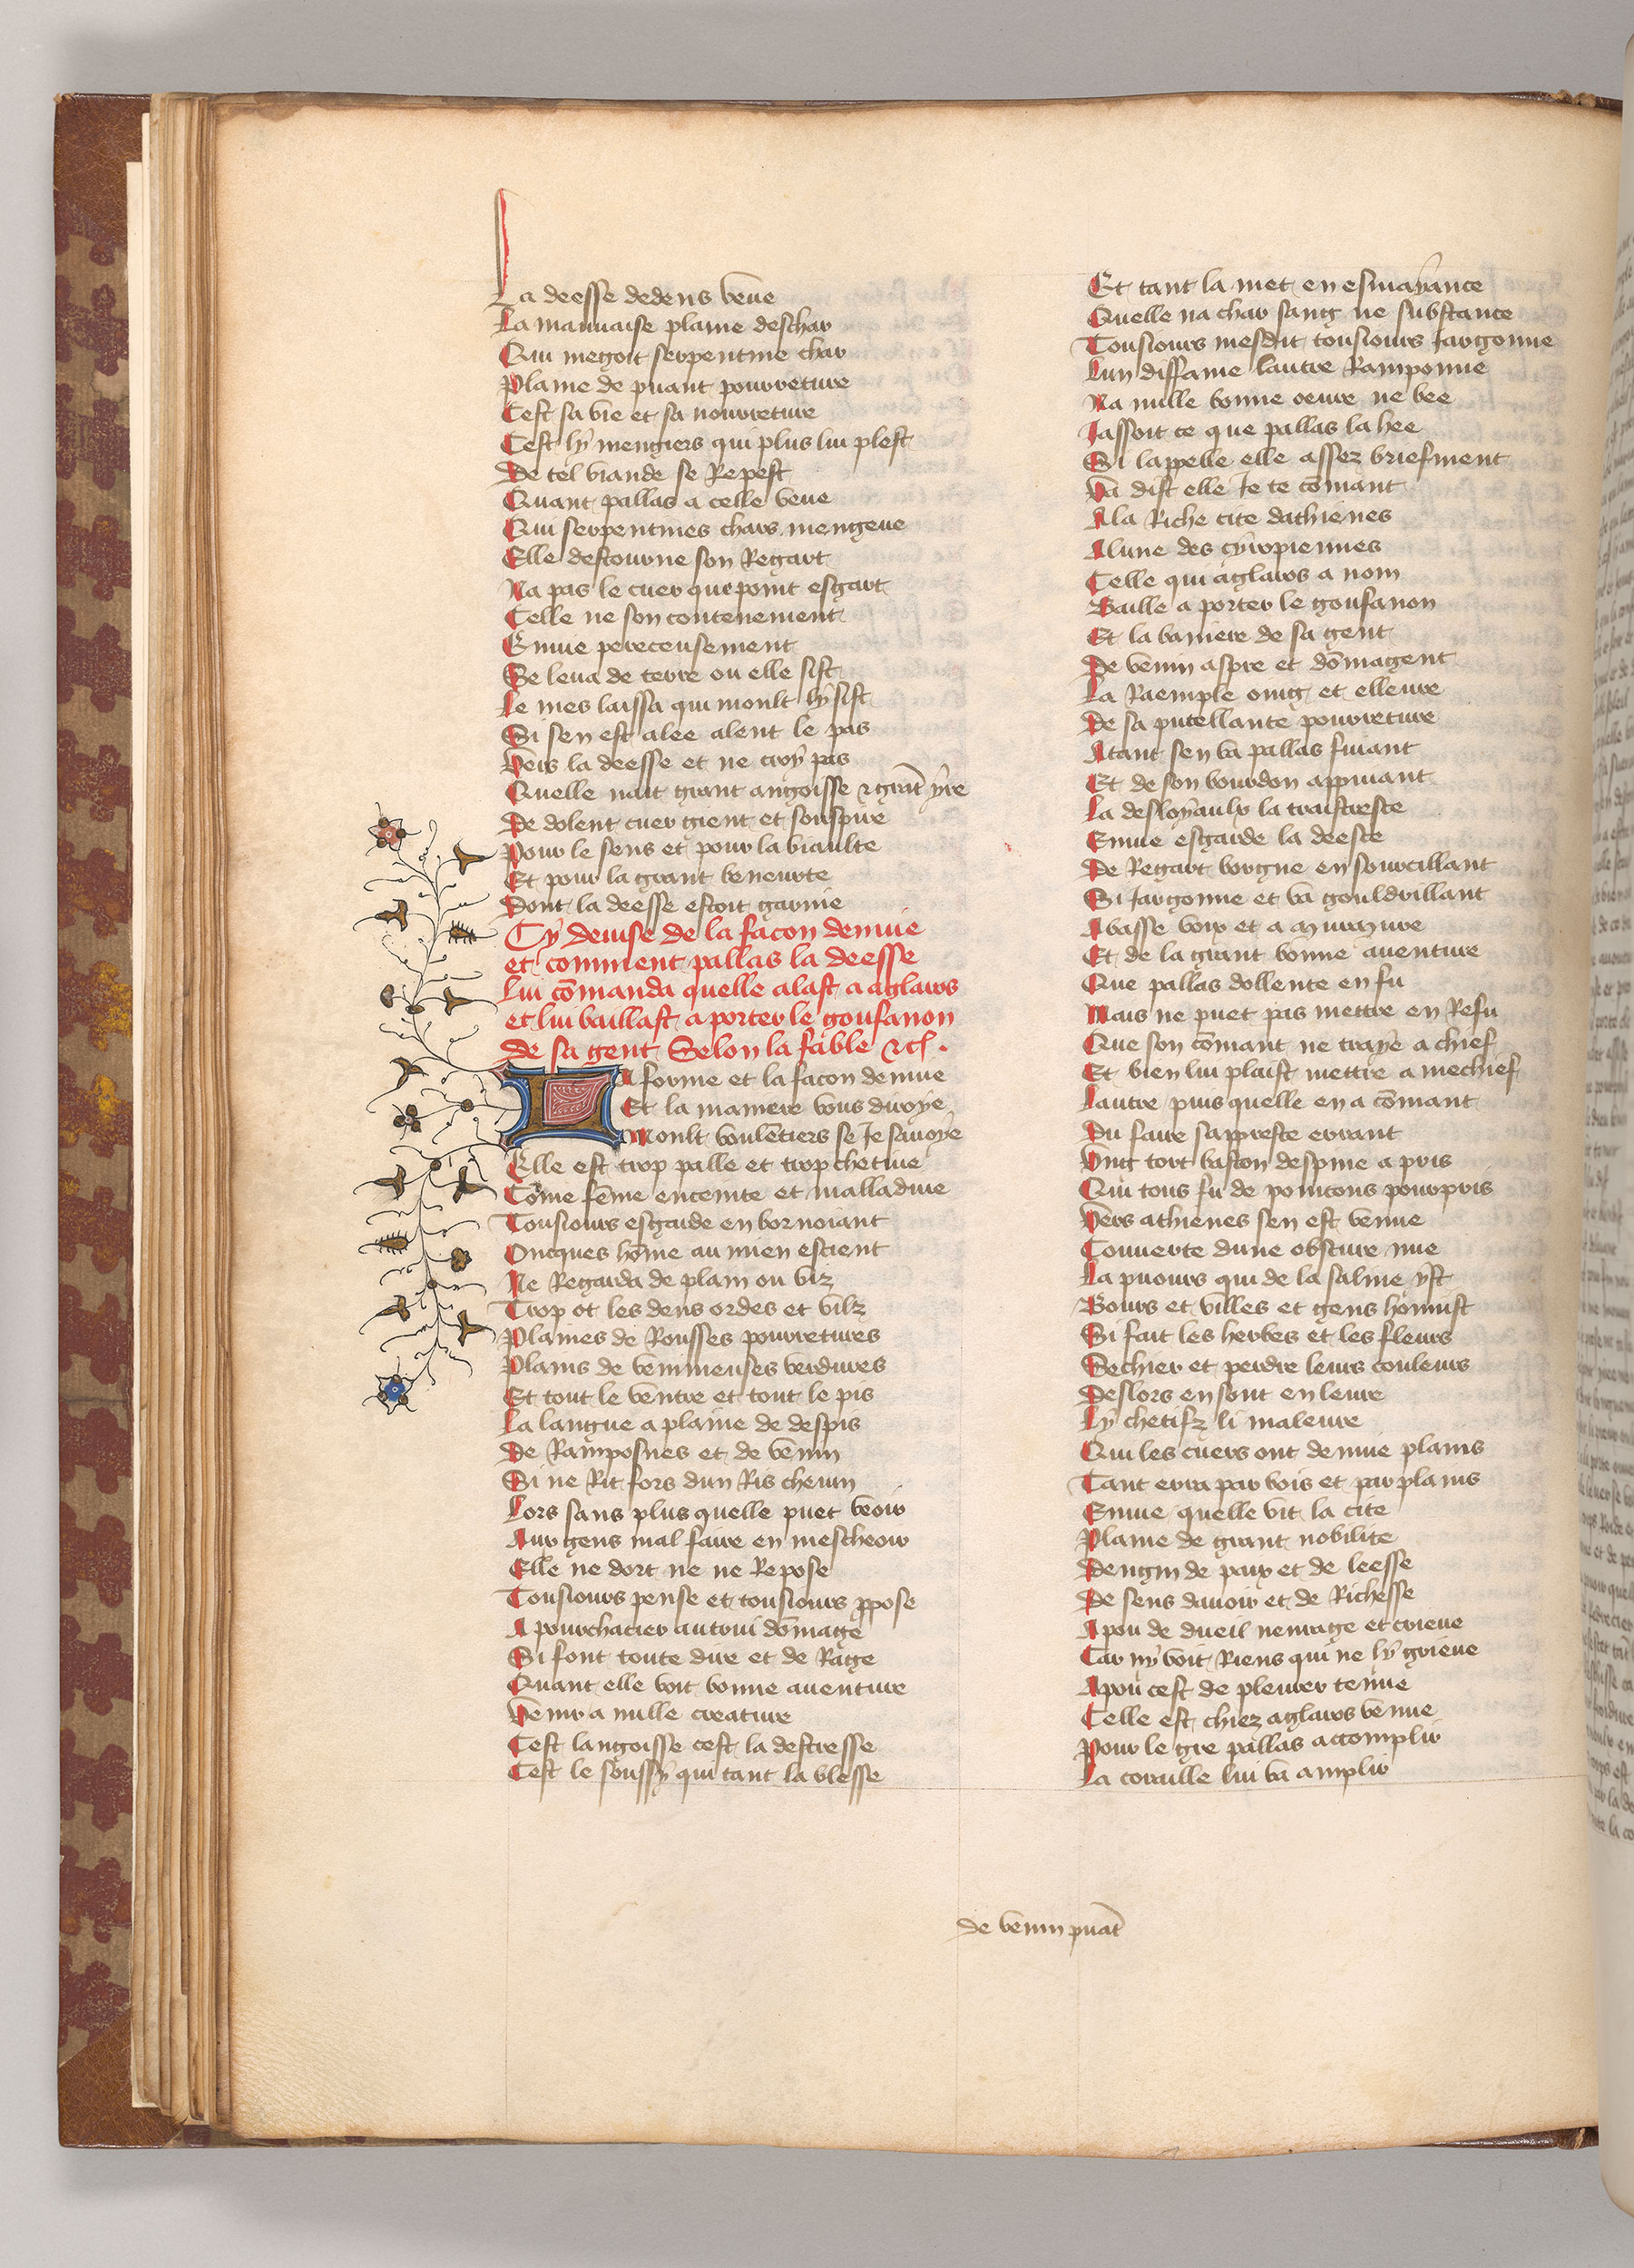 La deesse dedens veue
La mauuaise plaine deschar
Qui megoit serpentine char
Plaine de puant pourreture
Cest sa vie et sa nourreture
Cest ly mengiers qui plus lui plest
De tel viande se Repest
Quant pallas a celle veue
Qui serpentines chars mengeue
Elle destourne son Regart
Na pas le cuer que point esgart
Celle ne son contenement
Enuie pereceusement
Se leua de terre ou elle sist
Le mes laissa qui moult ly sist
Si sen est alee alent le pas
Vers la deesse et ne croy pas
Quelle nait grant angoisse & grāt yre
De dolent cuer gient et souspire
Pour le sens et pour la biaulte
Et pour la grant beneurte
Dont la deesse estoit garnie
Cy deuise de la facon denuie
et comment pallas la deesse
lui cōmanda quelle alast a aglaros
et lui baillast a porter le gonfanon
de sa gent Selon la fable &c.
La forme et la facon denuie
Et la maniere vous diroye
Moult voulentiers se Je sauoye
Elle est trop palle et trop chetiue
Cōme fēme enceinte et malladiue
Tousiours esgarde en bornoiant
Oncques hōme au mien escient
Ne Regarda de plain ou viz
Trop ot les dens ordes et vilz
Plaines de Rousses pourretures
Plains de venimeuses verdures
Et tout le ventre et tout le pis
La langue a plaine de despis
De Ramposnes et de venin
Si ne Rit fors dun Ris chenin
Lors sans plus quelle puet veoir
Aux gens mal faire en mescheoir
Elle ne dort ne ne Repose
Tousiours pense et tousiours ppose
A pourchacier autrui dōmage
Si font toute dire et de Rage
Quant elle voit bonne auenture
Venir a nulle creature
Cest langoisse cest la destresse
Cest le soussy qui tant la blesse
Et tant la met en esmayance
Quelle na char sang ne substance
Tousiours mesdit tousiours Jargonne
Lun diffame lautre Ramponne
Na nulle bonne oeuure ne bee
Jassoit ce que pallas la hee
Si lappelle elle assez briefment
Va dist elle Je te cōmant
A la Riche cite dathienes
A lune des cyropiennes
Celle qui aglaros a nom
Baille a porter le gonfanon
Et la baniere de sa gent
De venin aspre et dōmagent
La Raemple oing et elleure
De sa puellante pourreture
Atant sen va pallas fuiant
Et de son bourdon appuiant
La desloyaulx la traistresce
Enuie esgarde la deesce
De Regart borgne en sourcillant
Si Jargonne et va gouldrillant
A basse voix et a murmure
Et de la grant bonne auenture
Que pallas dollente en fu
Mais ne puet pas mettre en Refu
Que son cōmant ne traye a chief
Et bien lui plaist mettre a meschief
Lautre puis quelle en a cōmant
Du faire sappreste errant
Ung tort baston despine a pris
Qui tous fu de pointons pourpris
Vers athienes sen est venue
Couuerte dune obscure nue
La puours qui de la saliue yst
Bours et villes et gens honnist
Si fait les herbes et les fleurs
Sechier et perdre leurs couleurs
Deslors en sont en leure
Ly chetifz li maleure
Qui les cuers ont denuie plains
Tant erra par bois et par plains
Enuie quelle vit la cite
Plaine de grant nobilite
Dengin de paix et de leesse
De sens dauoir et de Richesse
A pou de dueil nenrage et crieue
Car ny voit Riens qui ne ly grieue
A pou cest de pleurer tenue
Celle est chiez aglaros venue
Pour le gre pallas accomplir
La coraille lui va amplir
de venin puāt